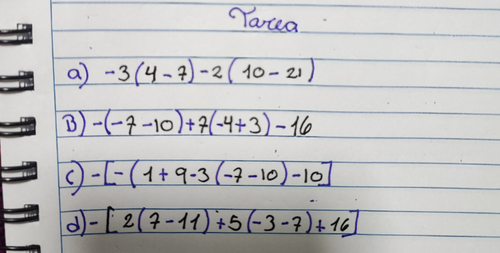 Tarea
a) -3(4-7)-2(10-21)
B) -(-7-10)+7(-4+3)-16
c) -[-(1+9-3(-7-10)-10]
d) -[2(7-11)+5(-3-7)+16]